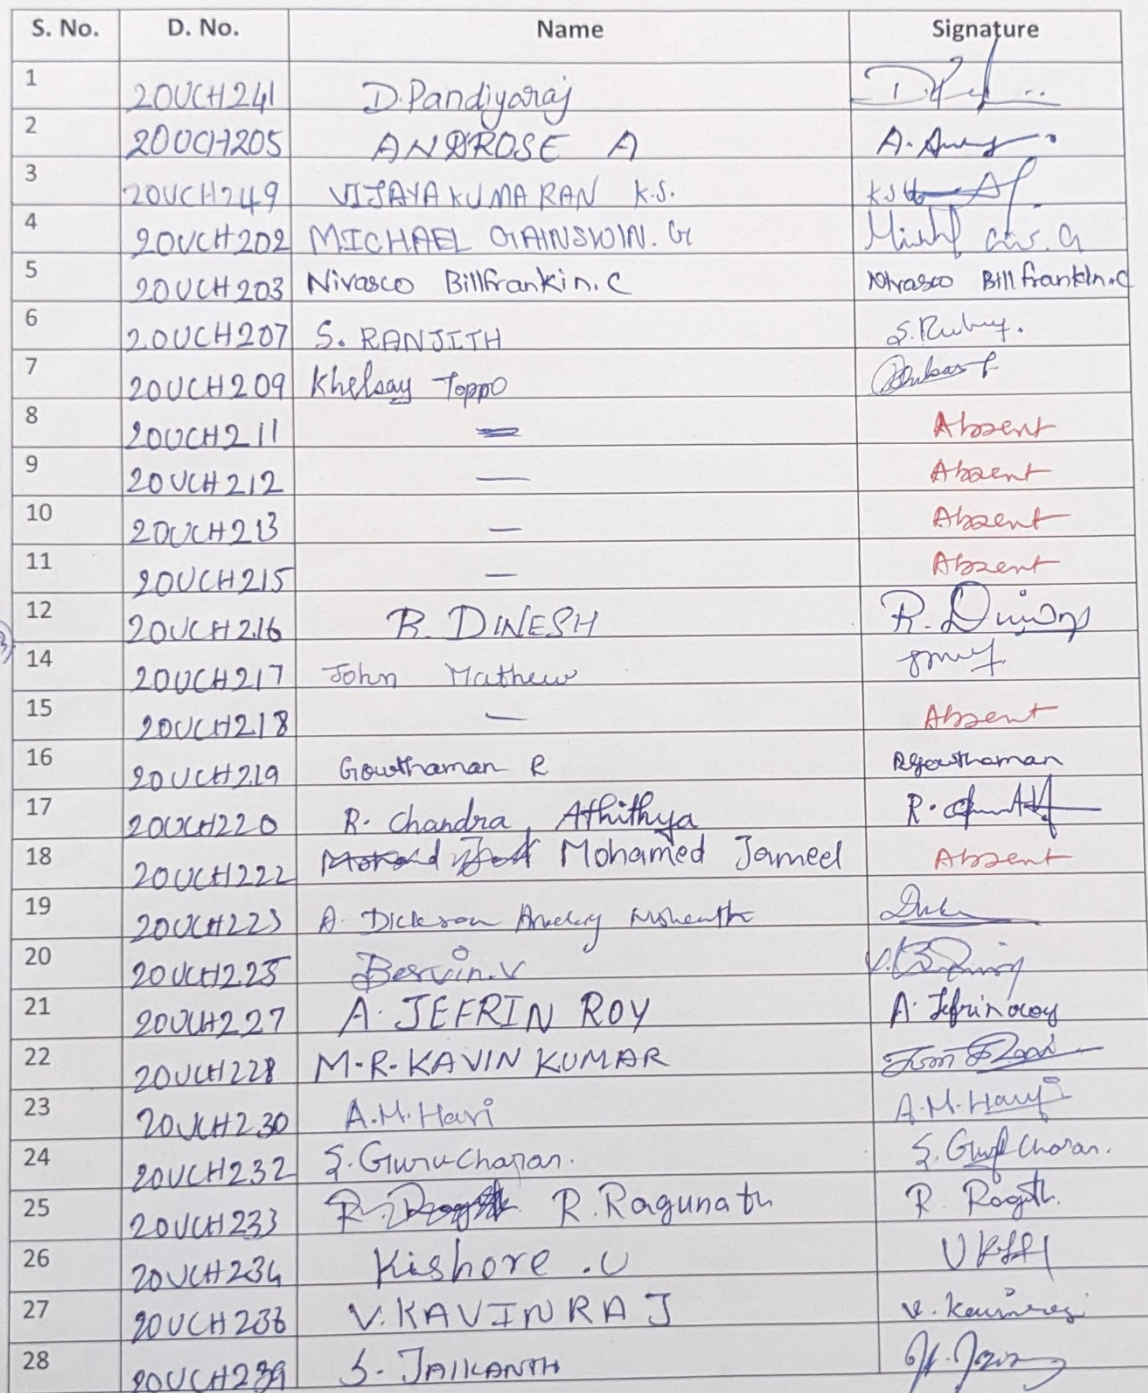 S. No. D. No. Name Signature
1 20UCH241 D.Pandiyaraj
2 20UCH205 ANDROSE A
3 20UCH249 VIJAYAKUMARAN K.S.
4 20UCH202 MICHAEL GAINSWIN. G
5 20UCH203 Nivasco Billfrankin. C Nivasco Bill franklin.C
6 20UCH207 S. RANJITH
7 20UCH209 Khelsay Toppo
8 20UCH211 — Absent
9 20UCH212 — Absent
10 20UCH213 — Absent
11 20UCH215 — Absent
12 20UCH216 R. DINESH
14 20UCH217 John Mathew
15 20UCH218 — Absent
16 20UCH219 Gowthaman R R Gowthaman
17 20UCH220 R. Chandra Athithya
18 20UCH222 Mohamed Jameel Absent
19 20UCH223 A. Dickson
20 20UCH225 Bervin.V
21 20UCH227 A. JEFRIN ROY A. Jefrin roy
22 20UCH228 M.R. KAVIN KUMAR
23 20UCH230 A.M. Hari A.M. Hari
24 20UCH232 S. Gurucharan. S. Gurucharan.
25 20UCH233 R. Ragunath
26 20UCH234 Kishore .U
27 20UCH236 V. KAVINRAJ
28 20UCH239 S. JAIKANTH